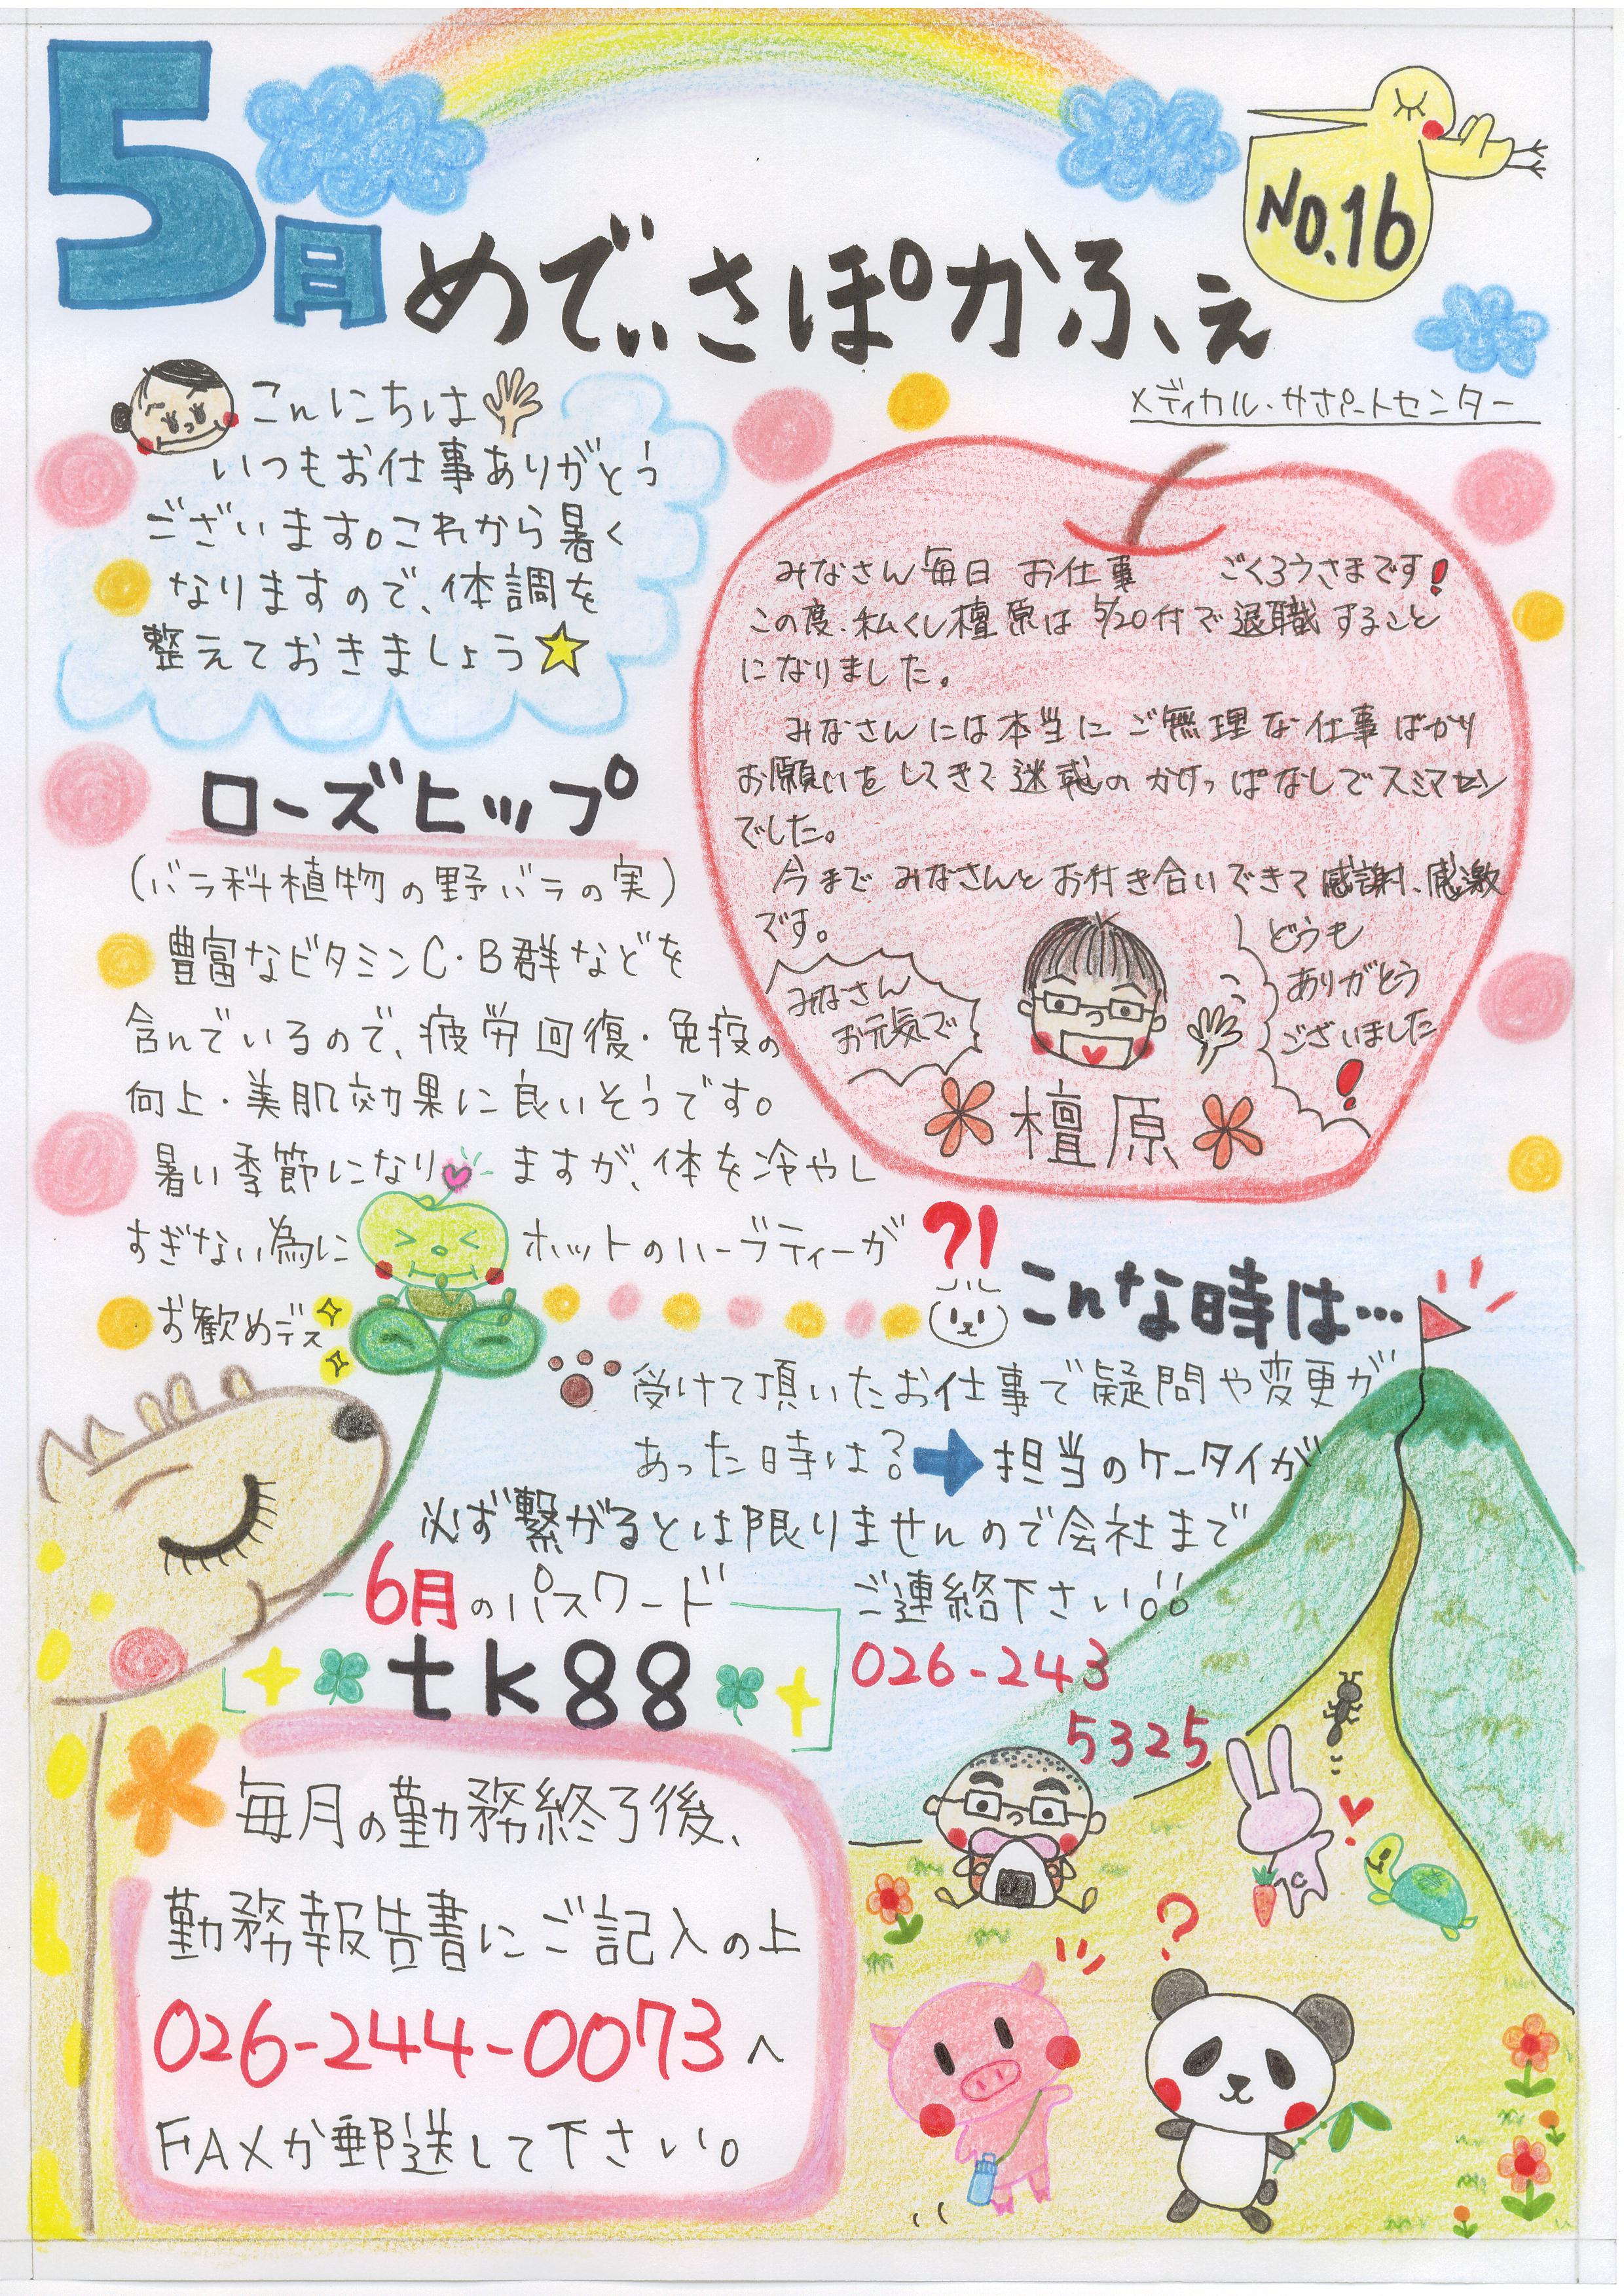 5月
めでぃさぽかふぇ
No.16
メディカル・サポートセンター
こんにちは
いつもお仕事ありがとう
ございます。これから暑く
なりますので、体調を
整えておきましょう
みなさん毎日 お仕事 ごくろうさまです!
この度、私くし檀原は5/20付で退職すること
になりました。
みなさんには本当にご無理な仕事ばかり
お願いをしてきて迷惑のかけっぱなしでスミマセン
でした。
今まで みなさんとお付き合いできて感謝、感激
です。
みなさん
お元気で
どうも
ありがとう
ございました
!
檀原
ローズヒップ
(バラ科植物の野バラの実)
豊富なビタミンC・B群などを
含んでいるので、疲労回復・免疫の
向上・美肌効果に良いそうです。
暑い季節になりますが、体を冷やし
すぎない為に ホットのハーブティーが
お歓めデス
?!
こんな時は…
受けて頂いたお仕事で疑問や変更が
あった時は?➡担当のケータイが
必ず繋がるとは限りませんので会社まで
ご連絡下さい!!
026-243
5325
6月のパスワード
tk88
毎月の勤務終了後、
勤務報告書にご記入の上
026-244-0073へ
FAXか郵送して下さい。
?